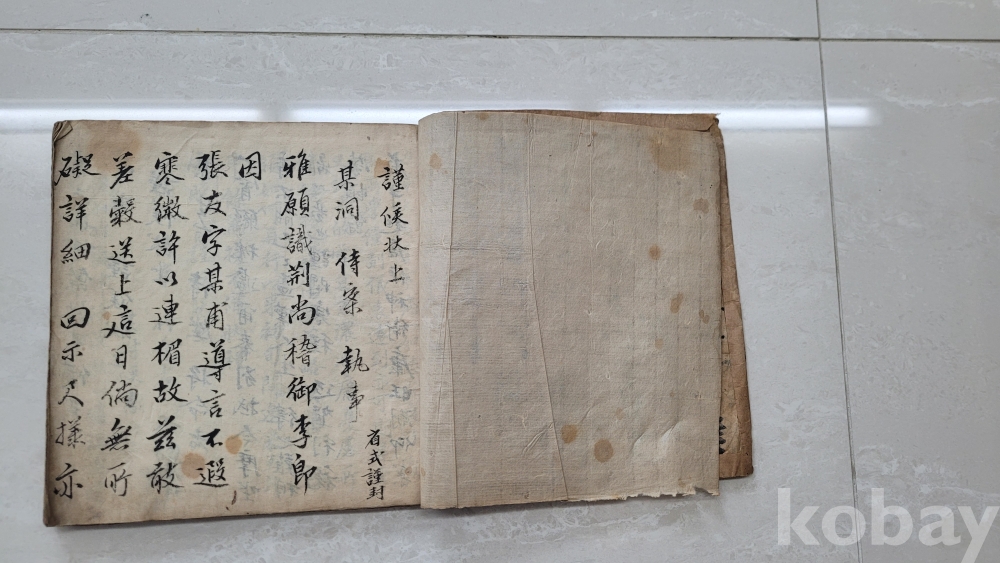 謹候狀上
某洞 侍案 執事
省式謹封
雅願識荊尚稽御李郎
因
張友字某甫導言不遐
寒微許以連楣故玆敢
差穀送上這日倘無所
礙詳細 回示尺樣亦
kobay